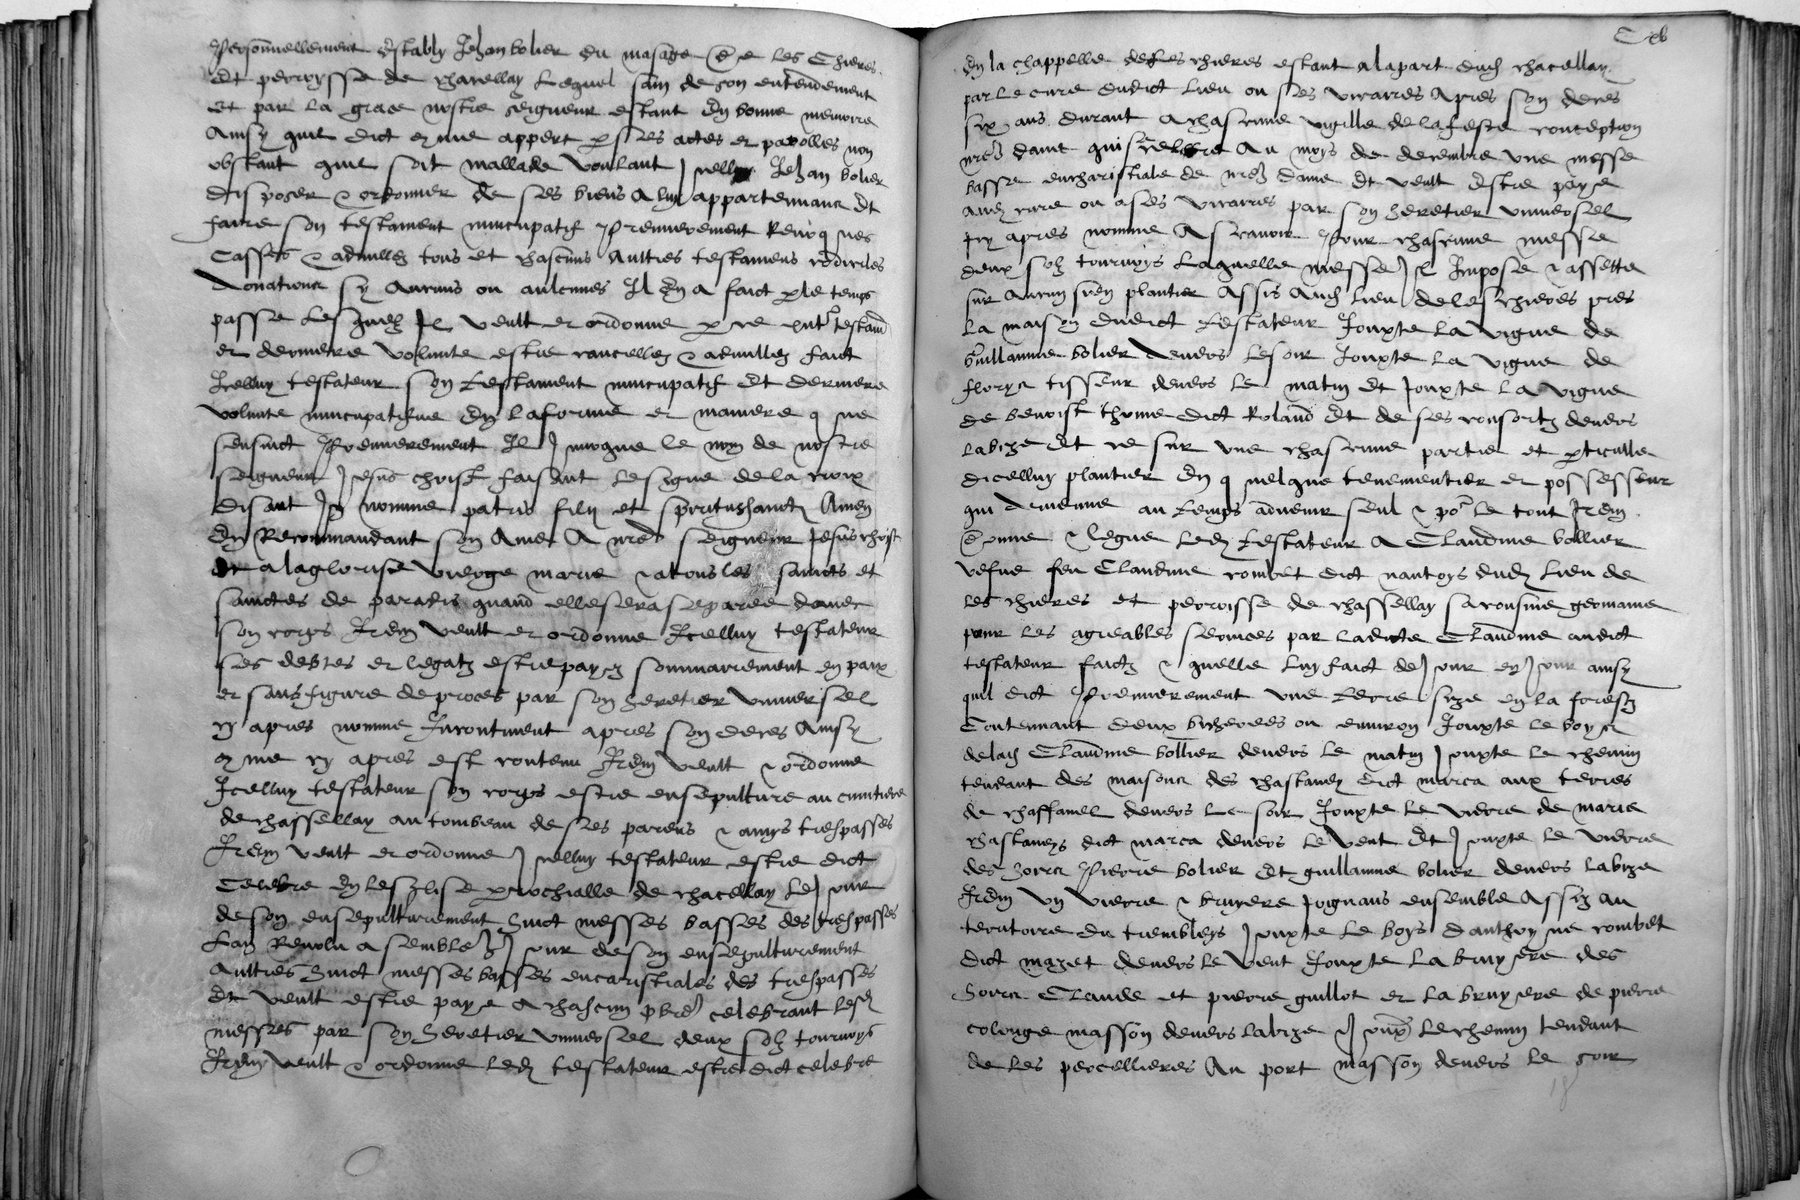 Personnellement estably Jehan bolier du masage de les Chieres
Et perroysse de chacellay Lequel sain de son entendement
Et par la grace nostre seigneur estant En bonne memoire
Ainsy quil dict et me appert p ses actes et parolles non
obstant quil soit mallade Voulant Icelluy Jehan bolier
disposer & ordonner de ses biens A luy appartenans Et
faire son testament nuncupatif Premierement Revoq ues
Casses & adnulles tous et chascuns Aultres testamens codicilles
donations sy Aucuns ou aulcunes Il En a faict p le temps
passe Lesquelz Il veult et ordonne p ce testamt
et derniere volunte estre cancellez & adnullez faict
Icelluy testateur son testament nuncupatif Et derniere
volunte nuncupatifue En la forme et maniere q ue
sensuict Premierement Il Invoque le nom de nostre
seigneur Jesus christ faisant le signe de la croix
disant In nomine patris filij et spiritussancti Amen
En Recommandant son Ame A nred seigneur Jesus christ
Et a la glorise vierge marie & a tous les sainctz et
sainctes de paradis quand elle sera separee davec
son corps Item veult et ordonne Icelluy testateur
ses debtes et legatz estre payez sommairement en paix
et sans figure de proces par son heretier universel
cy apres nomme Incontinent apres son deces Ainsy
q me cy apres est contenu Item veult & ordonne
Icelluy testateur son corps estre ensepulture au cimitiere
de chassellay au tombeau de ses parens & amys trespasses
Item veult et ordonne Icelluy testateur estre dict
Celebre En leglise p rochialle de chacellay Le Jour
de son ensepulturement huict messes basses des trespasses
Lan Revolu a semble Jour de son ensepulturement
Aultres huict messes basses encaristiales des trespasses
Et veult estre paye a chascun pbre celebrant lesd
messes par son heretier universel deux solz tournoys
Item veult & ordonne led testateur estre dict celebre
Cxv
En la chappelle des les chieres estant a la part dud chacellay
par le cure dudict lieu ou ses vicaires Apres son deces
six ans durant A chascune vigille de la feste conception
nred dame qui se celebre Au moys de decembre une messe
basse eucharistiale de nred dame Et veult estre paye
aud cure ou a ses vicaires par son heretier universel
cy apres nomme Ascavoir Pour chascune messe
deux solz tournoys Laquelle messe Il Impose & assette
sur Aucun sien plantier Assis Aud lieu de les chieres pres
la maison dudict testateur Jouxte la vigne de
Guillaume bolier devers le soir Jouxte la vigne de
florys tisseur devers le matin Et Jouxte la vigne
de benoist thome dict Roland Et de ses consortz devers
labize Et ce sur une chascune partie et p ticulle
dicelluy plantier En q uelque tenementier et possesseur
qui devienne au temps advenir seul & po le tout Item
donne & legue led testateur A Claudine bollier
vefue feu Claudine combet dict nantoys dud lieu de
les chieres et perroisse de chassellay sa cousine germaine
pour les agreables services par ladicte Claudine audict
testateur faictz & quelle luy faict de Jour en Jour ainsy
quil dict Premierement une terre size en la forestz
Contennant deux bicherees ou environ Jouxte le boys
de lad Claudine bollier devers le matin Jouxte le chemin
tendant des maisons des chastaneys dict marca aux terres
de chaffamel devers le soir Jouxte le vierre de marie
chastaneys dict marca devers le vent Et Jouxte le vierre
des hoirs Pierre bolier Et guillaume bolier devers labize
Item un vierre & bruyere Joignans ensemble Assiz au
terutoire du trembleys Jouxte le boys danthoy ne combet
dict mazet devers le vent Jouxte la bruyere des
hoirs Claude et pierre guillot et la bruyere de pierre
colonge masson devers labize & Jouxte le chemin tendant
de les percellieres Au port masson devers le soir